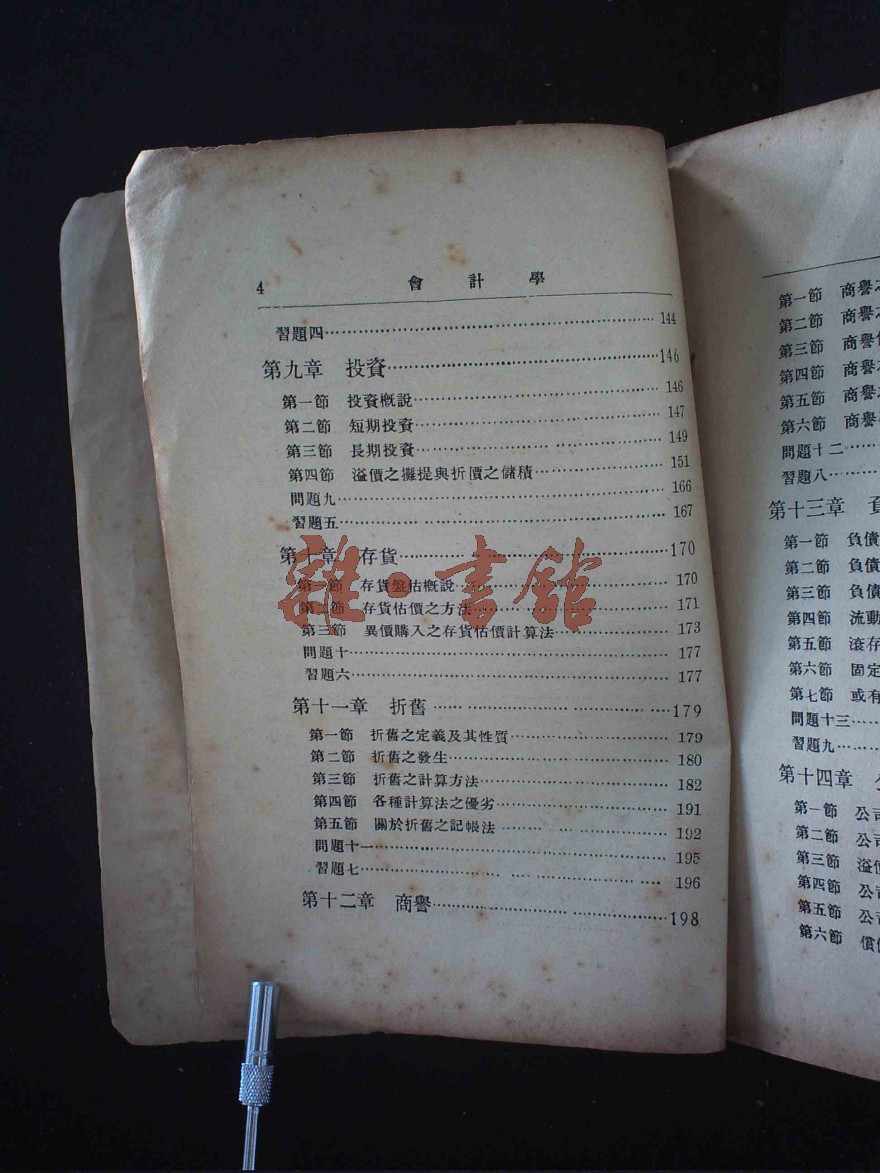 4 會計學
習題四 144
第九章 投資 146
第一節 投資槪說 146
第二節 短期投資 147
第三節 長期投資 149
第四節 溢價之攤提與折價之儲積 151
問題九 166
習題五 167
第十章 存貨 170
第一節 存貨盤估槪說 170
第二節 存貨估價之方法 171
第三節 異價購入之存貨估價計算法 173
問題十 177
習題六 177
第十一章 折舊 179
第一節 折舊之定義及其性質 179
第二節 折舊之發生 180
第三節 折舊之計算方法 182
第四節 各種計算法之優劣 191
第五節 關於折舊之記帳法 192
問題十一 195
習題七 196
第十二章 商譽 198
雜·書館
第一節 商譽之
第二節 商譽之
第三節 商譽
第四節 商譽
第五節 商譽
第六節 商譽
問題十二
習題八
第十三章 負
第一節 負債
第二節 負債
第三節 負債
第四節 流動
第五節 滾存
第六節 固定
第七節 或有
問題十三
習題九
第十四章 公
第一節 公司
第二節 公司
第三節 溢價
第四節 公司
第五節 公司
第六節 償